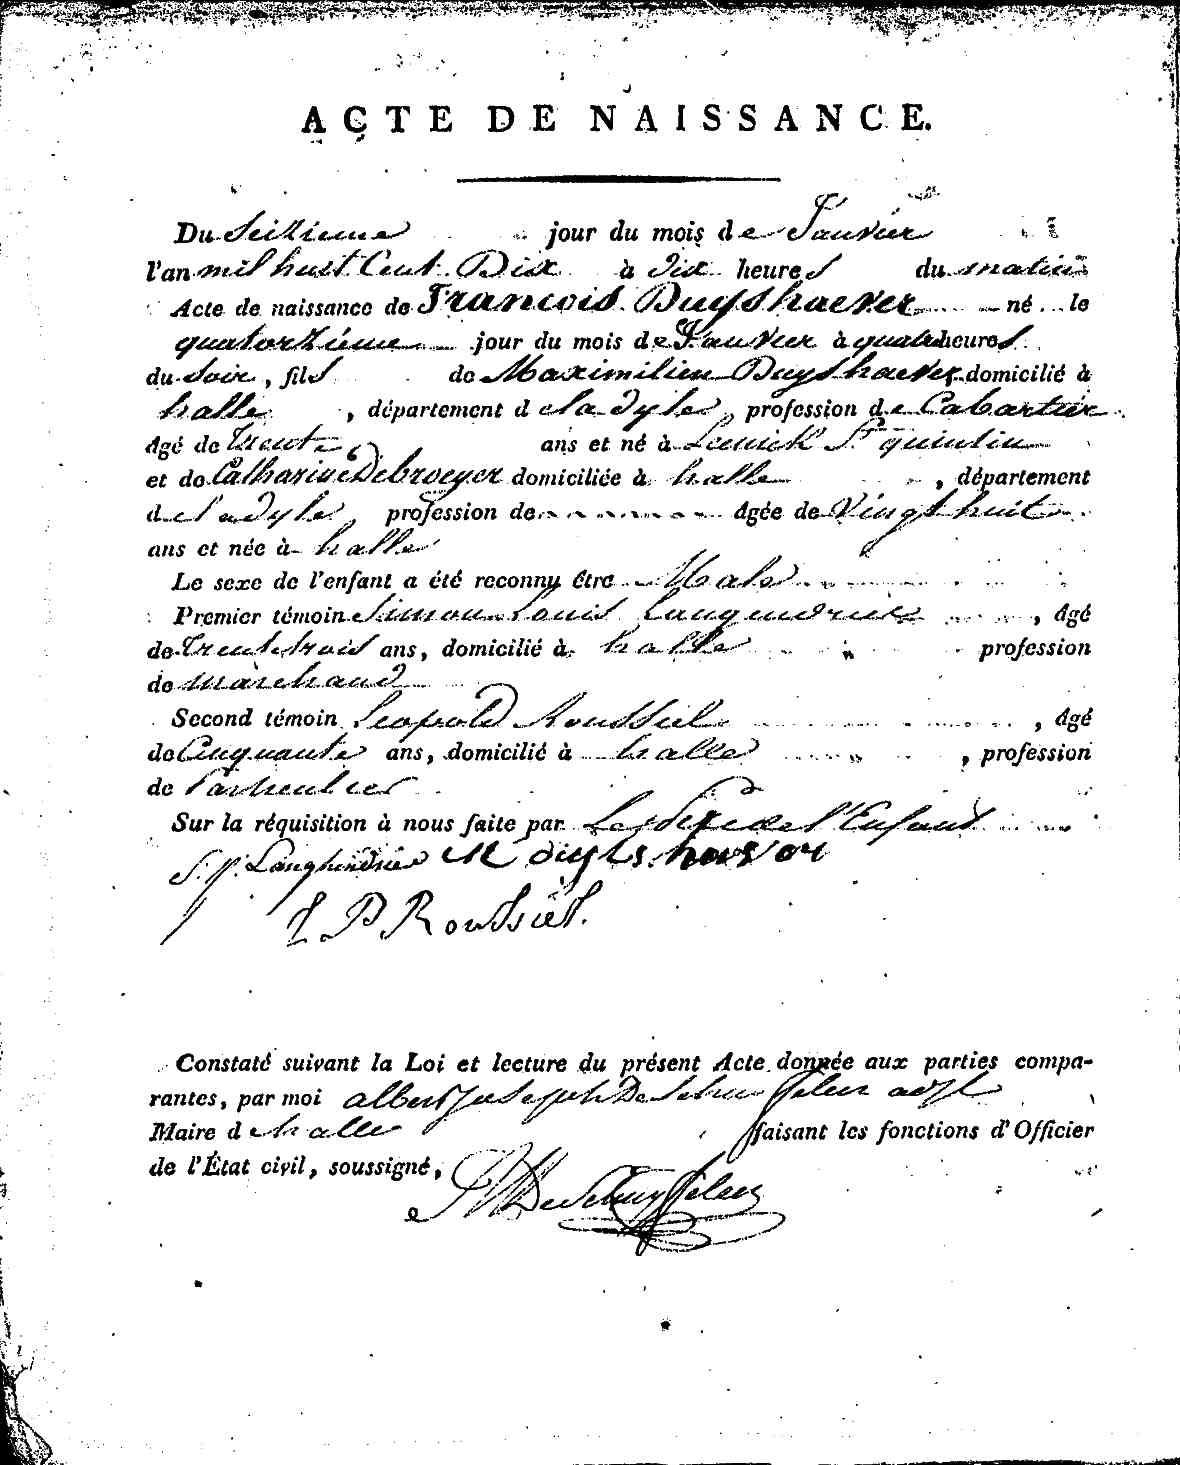 ACTE DE NAISSANCE.
Du Seizieme jour du mois de Janvier
l'an mil huit Cent Dix à dix heures du matin
Acte de naissance de Francois Duyshaever né le
quatorzième jour du mois de Janvier à quatre heures
du Soir, fils de Maximilien Duyshaever domicilié à
halle, département de la dyle, profession de Cabartier
âgé de Trente ans et né à Lennick St quintin
et de Catharine Debroeyer domiciliée à halle, département
de la dyle, profession de âgée de Vingt huit
ans et née à halle
Le sexe de l'enfant a été reconnu être Male
Premier témoin Simon Louis Langhendries, âgé
de Trente trois ans, domicilié à halle profession
de marchand
Second témoin Leopold Roussiel, âgé
de Cinquante ans, domicilié à halle, profession
de Particulier
Sur la réquisition à nous faite par Le Pere de l'Enfant
S. L. Langhendries M duyts haevor
L P Roussiel.
Constaté suivant la Loi et lecture du présent Acte donnée aux parties compa-
rantes, par moi albert Joseph De Schuyffeleer adjt
Maire de halle faisant les fonctions d'Officier
de l'État civil, soussigné,
DeSchuyffeleer